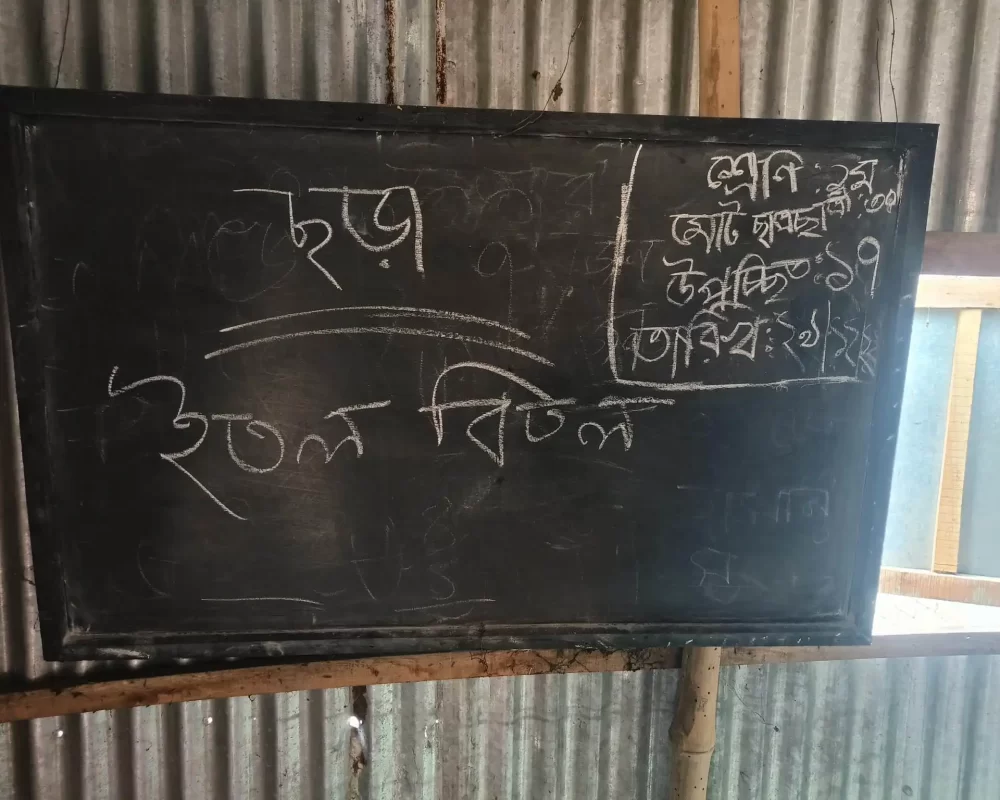 ছড়া
ইতল বিতল
শ্রেণি : ১ম
মোট ছাত্রছাত্রী : ৩০
উপস্থিত : ১৭
তারিখ :